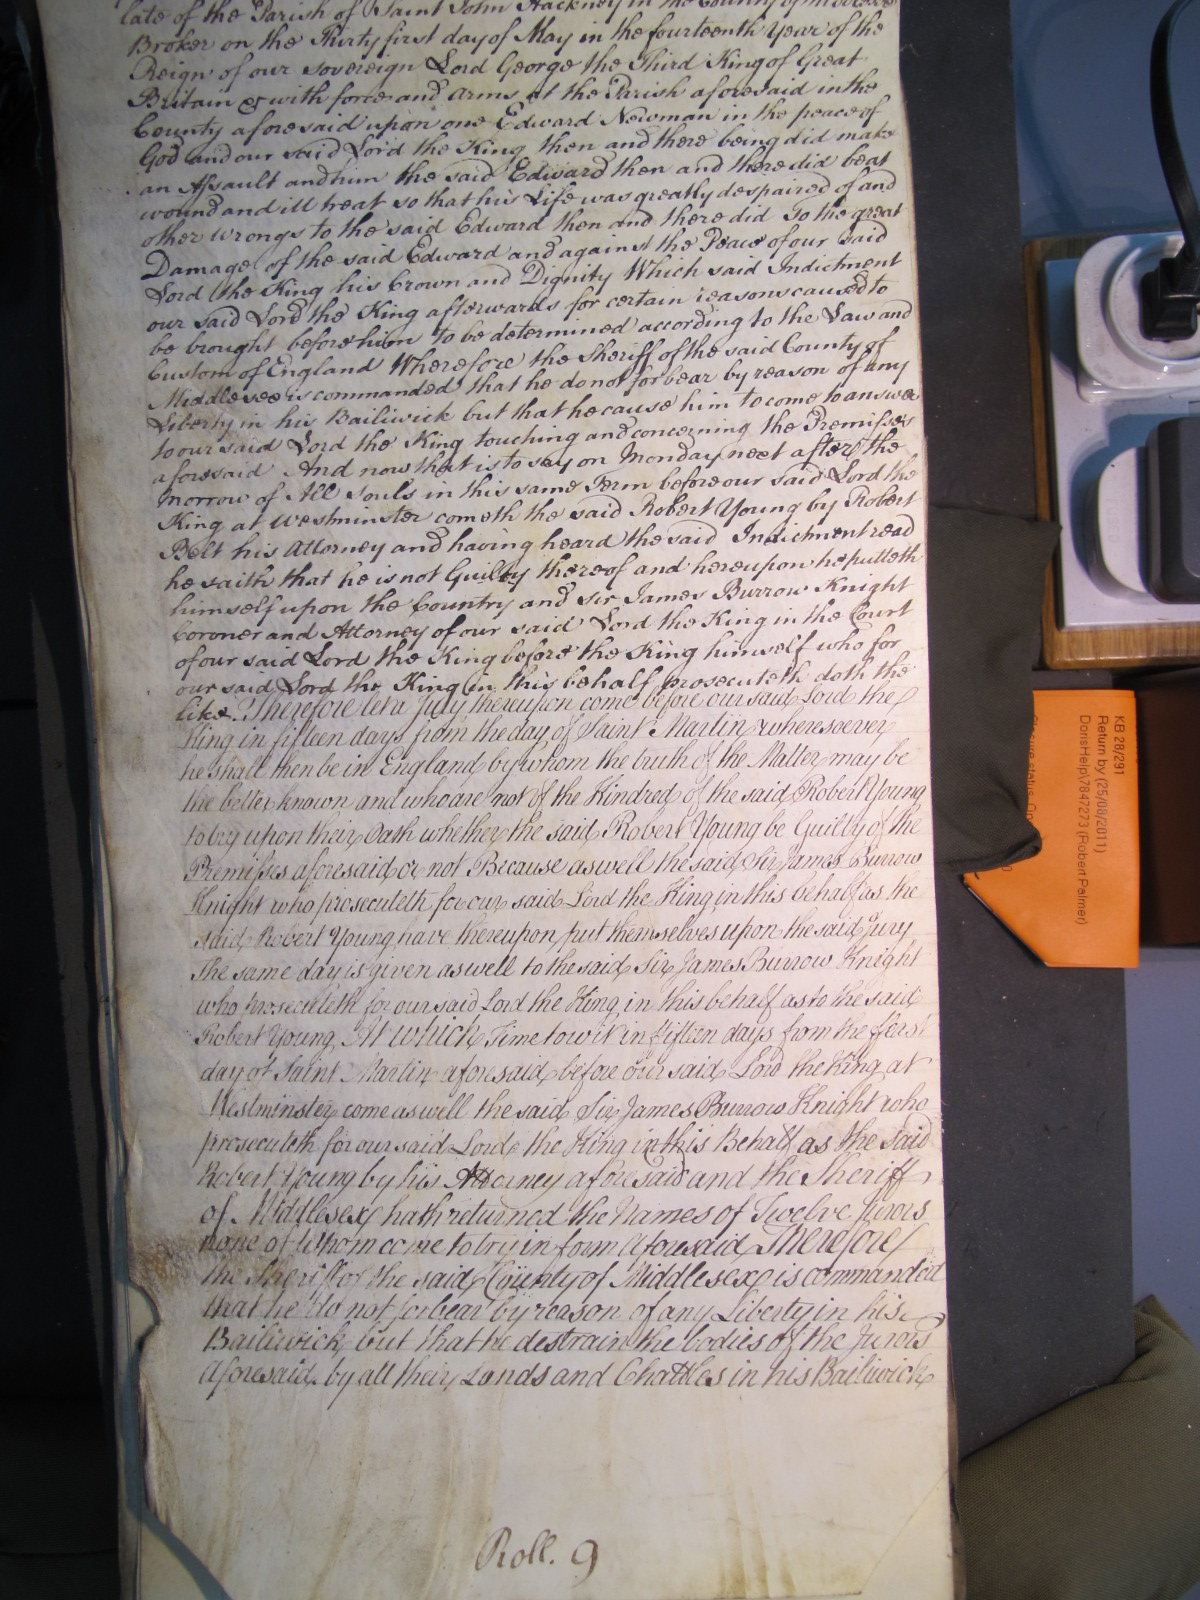 late of the Parish of Saint John Hackney in the County of Middlesex
Broker on the Thirty first day of May in the fourteenth Year of the
Reign of our Sovereign Lord George the Third King of Great
Britain &c with force and Arms at the Parish aforesaid in the
County aforesaid upon one Edward Newman in the peace of
God and our said Lord the King then and there being did make
an Assault and him the said Edward then and there did beat
wound and ill treat so that his Life was greatly despaired of and
other wrongs to the said Edward then and there did to the great
Damage of the said Edward and against the Peace of our said
Lord the King his Crown and Dignity Which said Indictment
our said Lord the King afterwards for certain reasons caused to
be brought before him to be determined according to the Law and
Custom of England Wherefore the Sheriff of the said County of
Middlesex is commanded that he do not forbear by reason of any
Liberty in his Bailiwick but that he cause him to come to answer
to our said Lord the King touching and concerning the Premisses
aforesaid And now that is to say on Monday next after the
morrow of All Souls in this same Term before our said Lord the
King at Westminster cometh the said Robert Young by Robert
Belt his Attorney and having heard the said Indictment read
he saith that he is not Guilty thereof and hereupon he putteth
himself upon the Country and Sir James Burrow Knight
Coroner and Attorney of our said Lord the King in the Court
of our said Lord the King before the King himself who for
our said Lord the King in this behalf prosecuteth doth the
like. Therefore let a Jury thereupon come before our said Lord the
King in fifteen days from the day of Saint Martin wheresoever
he shall then be in England by whom the truth of the Matter may be
the better known and who are not of the Kindred of the said Robert Young
to try upon their Oath whether the said Robert Young be Guilty of the
Premisses aforesaid or not Because as well the said Sir James Burrow
Knight who prosecuteth for our said Lord the King in this behalf as the
said Robert Young have thereupon put themselves upon the said Jury
The same day is given as well to the said Sir James Burrow Knight
who prosecuteth for our said Lord the King in this behalf as to the said
Robert Young, At which Time to wit in fifteen days from the
day of Saint Martin aforesaid before our said Lord the King at
Westminster come as well the said Sir James Burrow Knight who
prosecuteth for our said Lord the King in this Behalf as the said
Robert Young by his Attorney aforesaid and the Sheriff
of Middlesex hath returned the Names of Twelve Jurors
none of Whom come to try in form Aforesaid Therefore
the Sheriff of the said County of Middlesex is commanded
that he do not forbear by reason of any Liberty in his
Bailiwick but that he destrain the bodies of the Jurors
Aforesaid by all their Lands and Chattles in his Bailiwick
Roll. 9
KB 28/291
Return by (25/08/2011)
DorisHelp\7847273 (Robert Palmer)